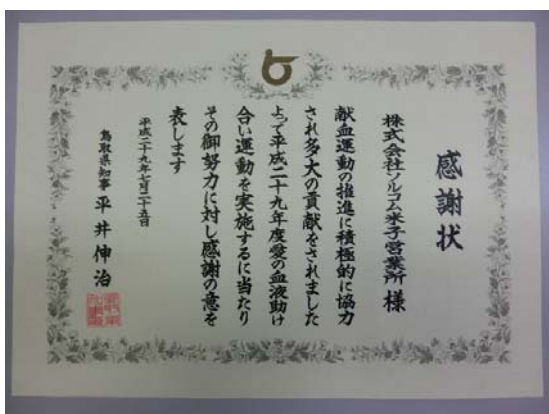 感謝状
株式会社ソルコム米子営業所 様
献血運動の推進に積極的に協力
され多大の貢献をされました
よって平成二十九年度愛の血液助け
合い運動を実施するに当たり
その御努力に対し感謝の意を
表します
平成二十九年七月二十五日
鳥取県知事 平井伸治